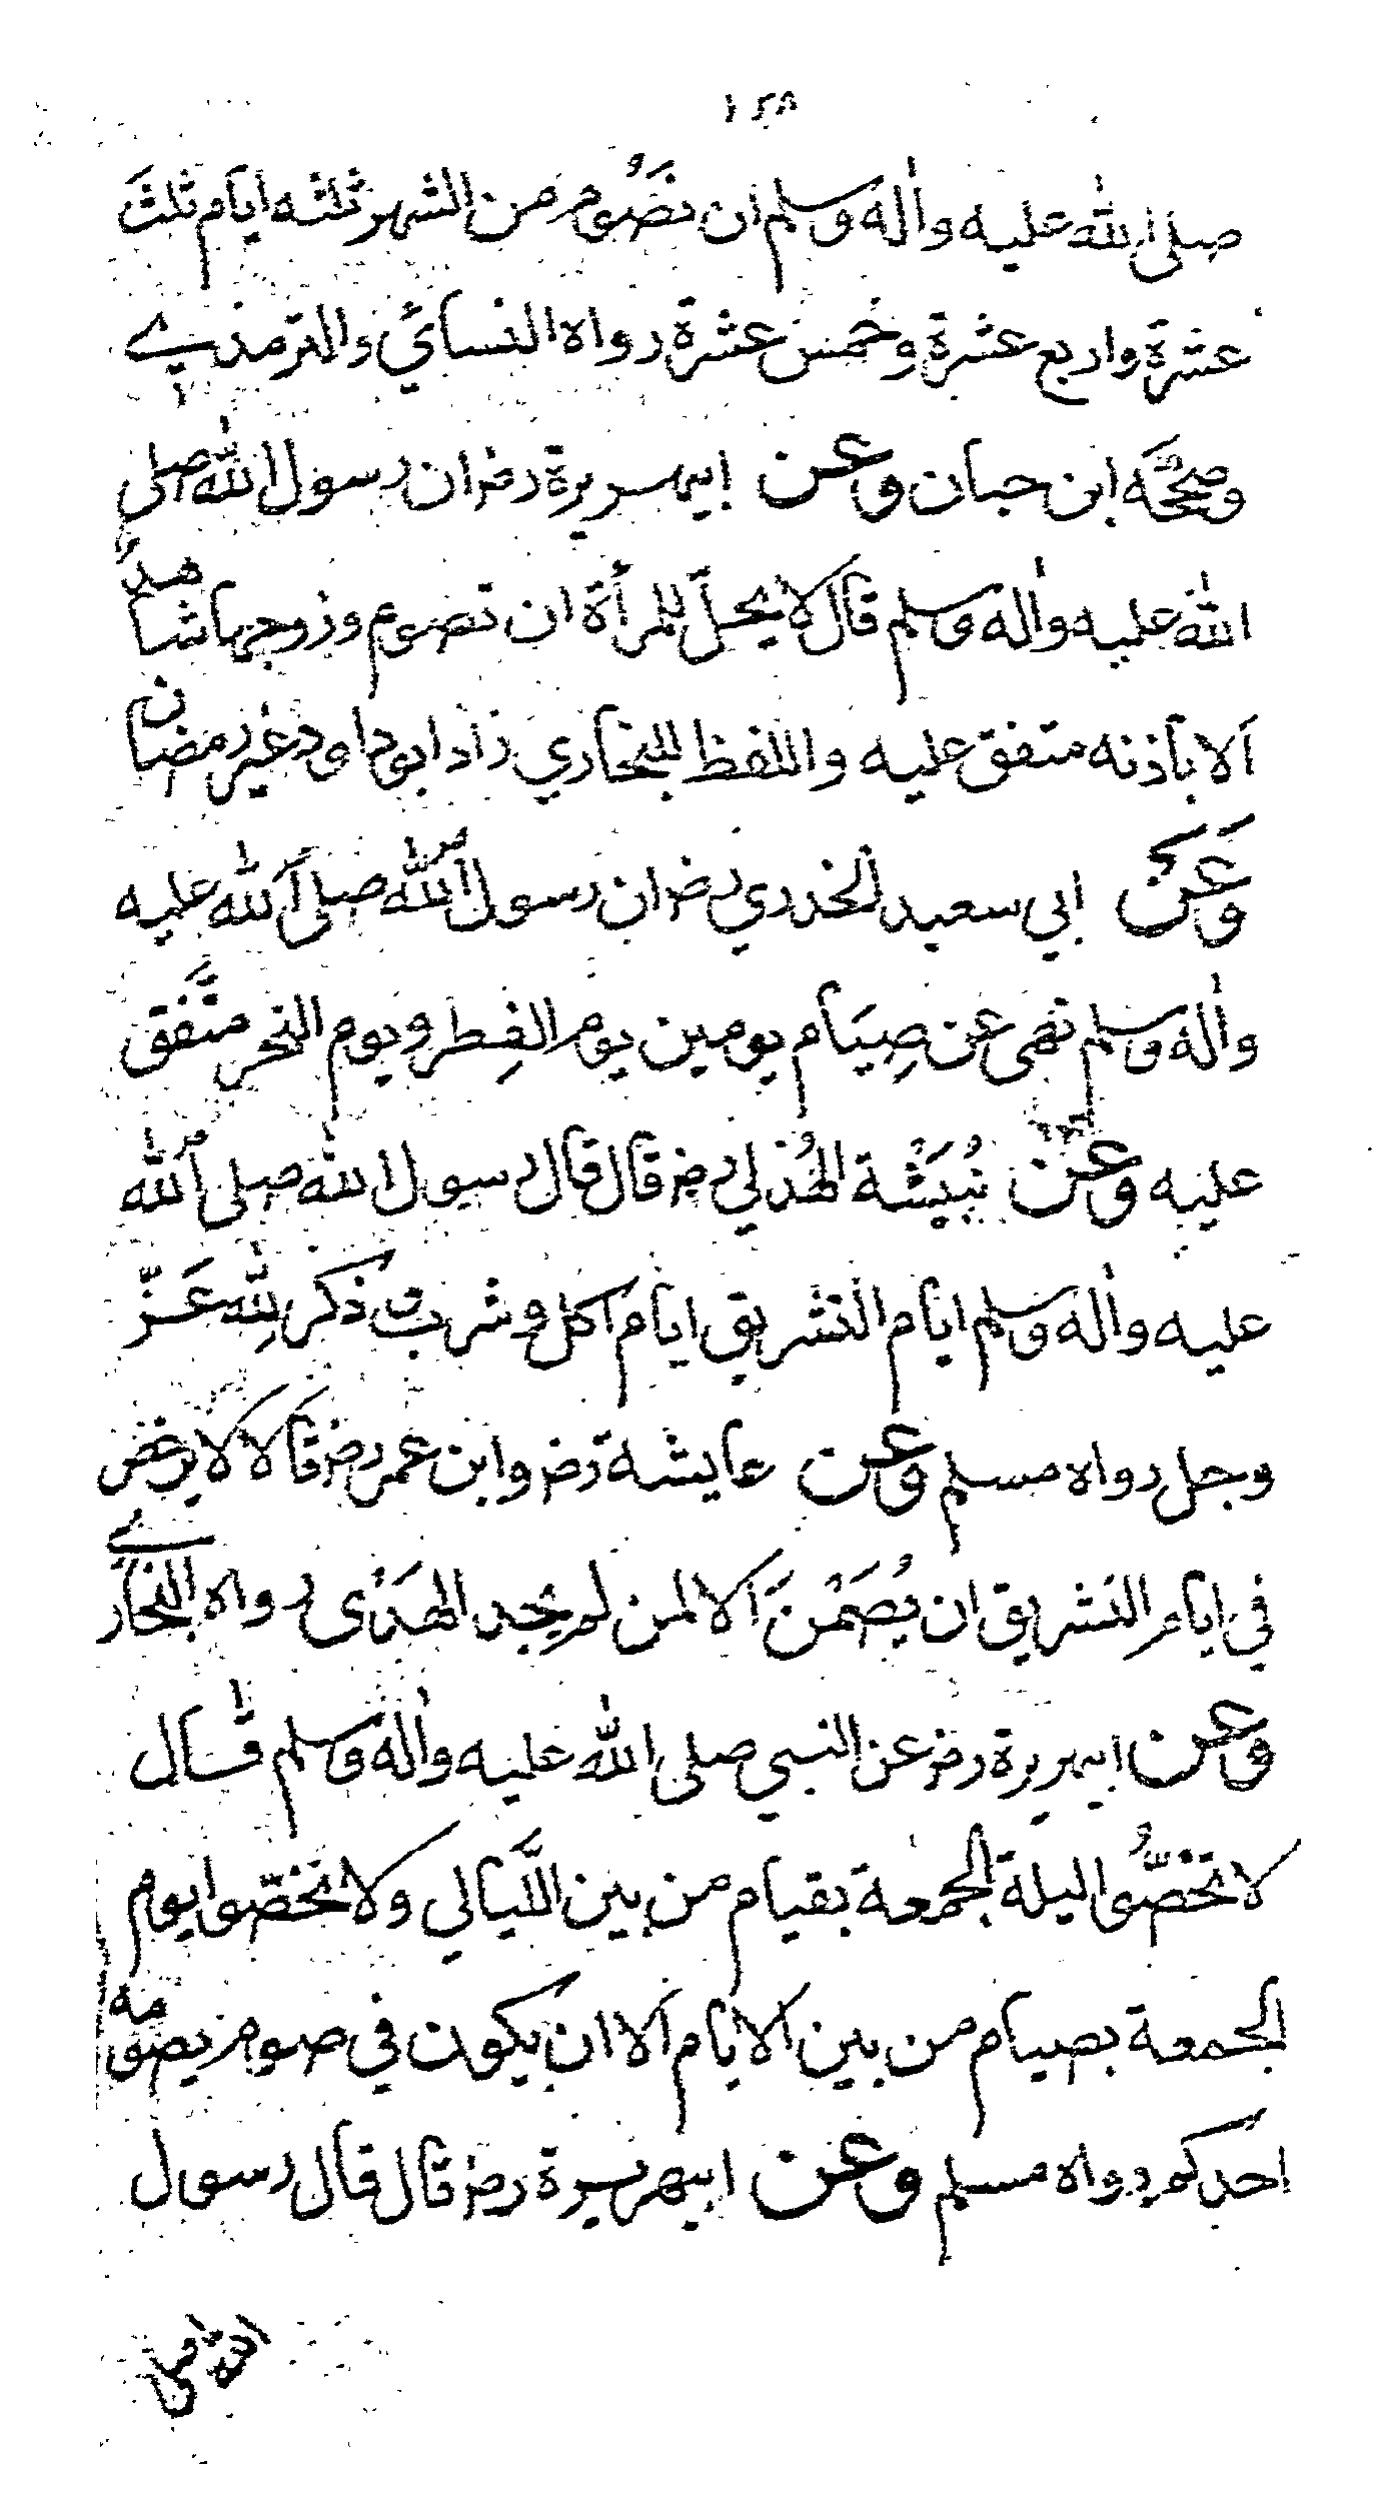 ١٢٨
صلى الله عليه واٰله وسلم ان نصُوم من الشهر ثلثه ايام ثلثَ
عشرة واربع عشرة وخمس عشرة رواه النسائي والترمذي
وصححَه ابن حبان وعن ابيهريرة رضر ان رسول الله صلى
الله عليه واٰله وسلم قال لا يحلّ للمرأة ان تصوم وزوجها شاهدٌ
الا باذنه متفق عليه واللفظ للبخاري زاد ابوداود غير رمضان
وَعَن ابي سعيد الخدري رضر ان رسول الله صلى الله عليه
واٰله وسلم نهى عن صِيَام يومين يوم الفِطر ويوم النحر متَّفق
عليه وعن نُبَيْشة الهُذلي رضر قال قال رسول الله صلى الله
عليه واٰله وسلم ايام التشريق ايام اكل وشرب وذكر لِلّٰه عَزّ
وجل رواه مسلم وعن عايشة رضر وابن عمر رضر قالا لا يرخص
في ايام التشريق ان يُصَمْنَ الا لمن لم يجد الهَدْى رواه البخاري
وعن ابيهريرة رضر عن النبي صلى الله عليه واٰله وسلم قال
لا تخْصّوُا ليلة الجمعة بقيام من بين اللَّيالي ولا تخصّوا يوم
الجمعة بصيام من بين الايام الا ان يكون في صوم يصومه
احدكم رواه مسلم وعن ابيهريرة رضر قال قال رسول